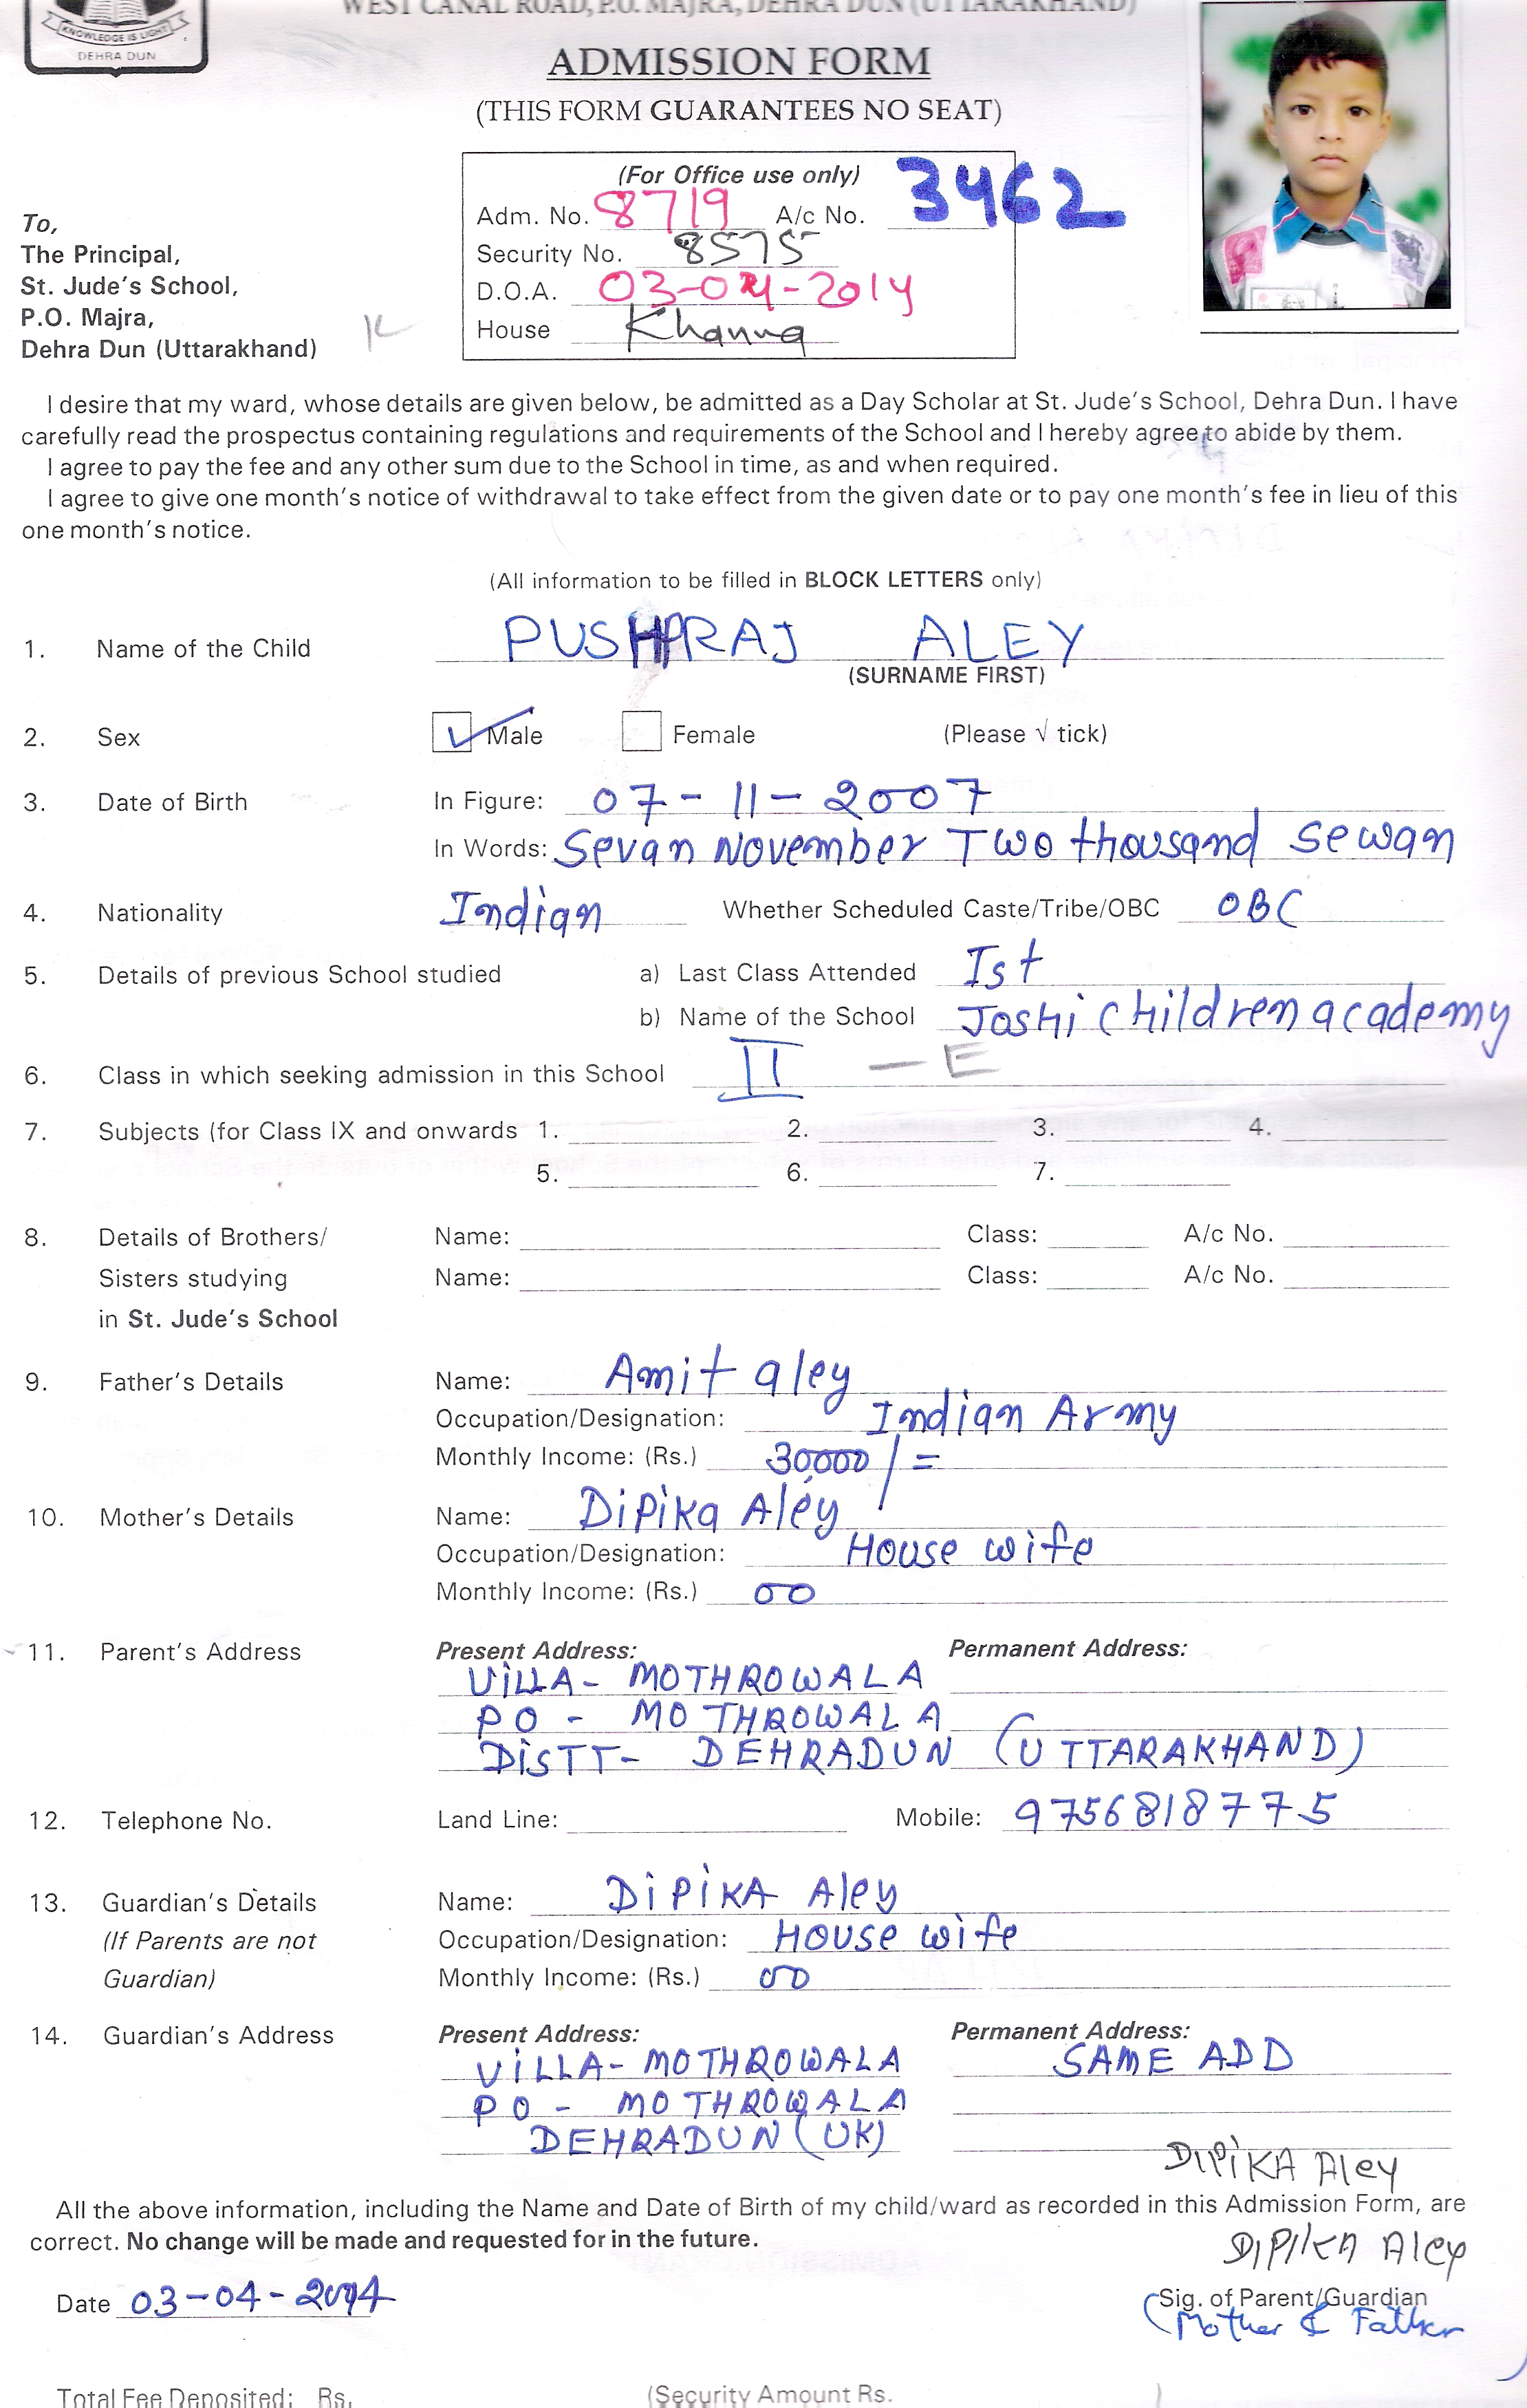 WEST CANAL ROAD, P.O. MAJRA, DEHRA DUN (UTTARAKHAND)
KNOWLEDGE IS LIGHT
DEHRA DUN
ADMISSION FORM
(THIS FORM GUARANTEES NO SEAT)
(For Office use only)
Adm. No. 8719 A/c No. 3462
Security No. 8575
D.O.A. 03-04-2014
House Khanna
To,
The Principal,
St. Jude's School,
P.O. Majra,
Dehra Dun (Uttarakhand)
I desire that my ward, whose details are given below, be admitted as a Day Scholar at St. Jude's School, Dehra Dun. I have
carefully read the prospectus containing regulations and requirements of the School and I hereby agree to abide by them.
I agree to pay the fee and any other sum due to the School in time, as and when required.
I agree to give one month's notice of withdrawal to take effect from the given date or to pay one month's fee in lieu of this
one month's notice.
(All information to be filled in BLOCK LETTERS only)
1. Name of the Child PUSHPRAJ ALEY
(SURNAME FIRST)
2. Sex Male Female (Please √ tick)
3. Date of Birth In Figure: 07-11-2007
In Words: Sevan November Two thousand Sewan
4. Nationality Indian Whether Scheduled Caste/Tribe/OBC OBC
5. Details of previous School studied a) Last Class Attended Ist
b) Name of the School Joshi Children academy
6. Class in which seeking admission in this School II - E
7. Subjects (for Class IX and onwards 1. 2. 3. 4.
5. 6. 7.
8. Details of Brothers/ Name: Class: A/c No.
Sisters studying Name: Class: A/c No.
in St. Jude's School
9. Father's Details Name: Amit aley
Occupation/Designation: Indian Army
Monthly Income: (Rs.) 30,000/=
10. Mother's Details Name: Dipika Aley
Occupation/Designation: House wife
Monthly Income: (Rs.) 00
11. Parent's Address Present Address: Permanent Address:
ViLLA- MOTHROWALA
PO - MOTHROWALA
DiSTT- DEHRADUN (UTTARAKHAND)
12. Telephone No. Land Line: Mobile: 9756818775
13. Guardian's Details Name: DiPiKA Aley
(If Parents are not Occupation/Designation: House wife
Guardian) Monthly Income: (Rs.) 00
14. Guardian's Address Present Address: Permanent Address:
ViLLA- MOTHROWALA SAME ADD
PO - MOTHROWALA
DEHRADUN (UK)
DIPIKA Aley
All the above information, including the Name and Date of Birth of my child/ward as recorded in this Admission Form, are
correct. No change will be made and requested for in the future.
DIPIKA Aley
Date 03-04-2014 Sig. of Parent/Guardian
(Mother & Father)
Total Fee Deposited: Rs. (Security Amount Rs. )